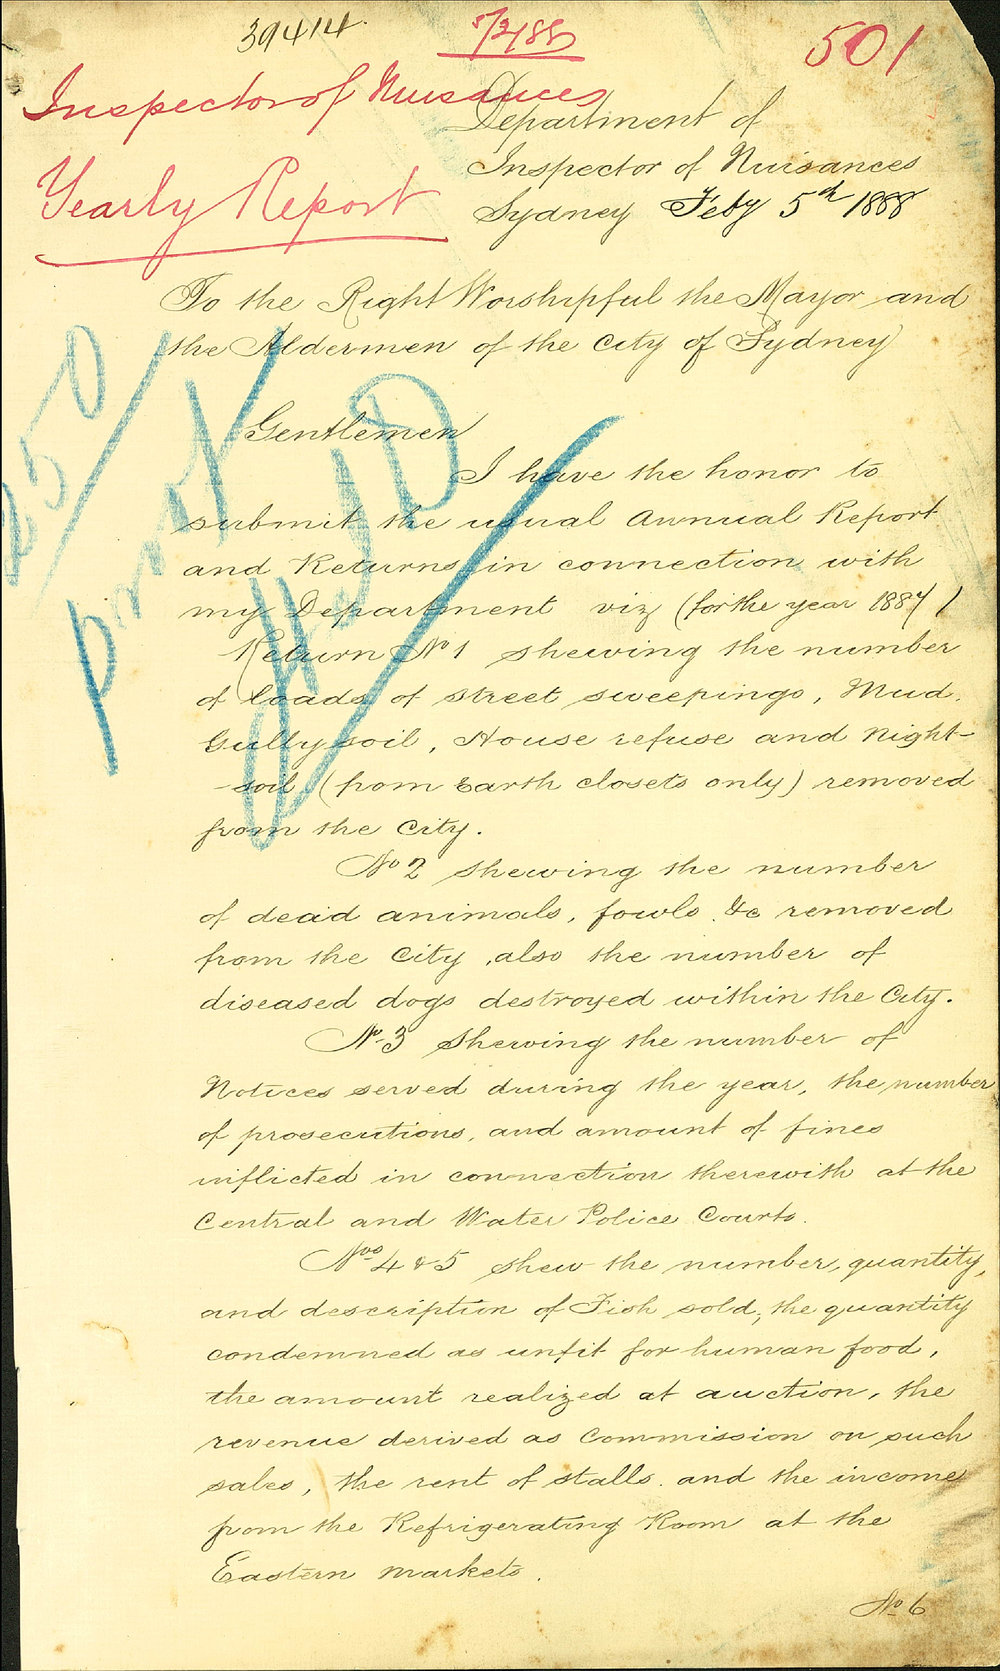 39414
5/2/88
501
Inspector of Nuisances
Yearly Report
Department of
Inspector of Nuisances
Sydney Feby 5th 1888
To the Right Worshipful the Mayor and
the Aldermen of the City of Sydney
250
print
Gentlemen
I have the honor to
submit the usual Annual Report
and Returns in connection with
my Department viz (for the year 1887)
Return No 1 shewing the number
of loads of street sweepings, Mud,
Gully soil, House refuse and Night-
-soil (from Earth closets only) removed
from the City.
No 2 shewing the number
of dead animals, fowls &c removed
from the City, also the number of
diseased dogs destroyed within the City.
No 3 Shewing the number of
Notices served during the year, the number
of prosecutions, and amount of fines
inflicted in connection therewith at the
Central and Water Police Courts.
Nos 4 & 5 shew the number, quantity,
and description of Fish sold, the quantity
condemned as unfit for human food,
the amount realized at auction, the
revenue derived as Commission on such
sales, the rent of stalls. and the income
from the Refrigerating Room at the
Eastern Markets.
No 6